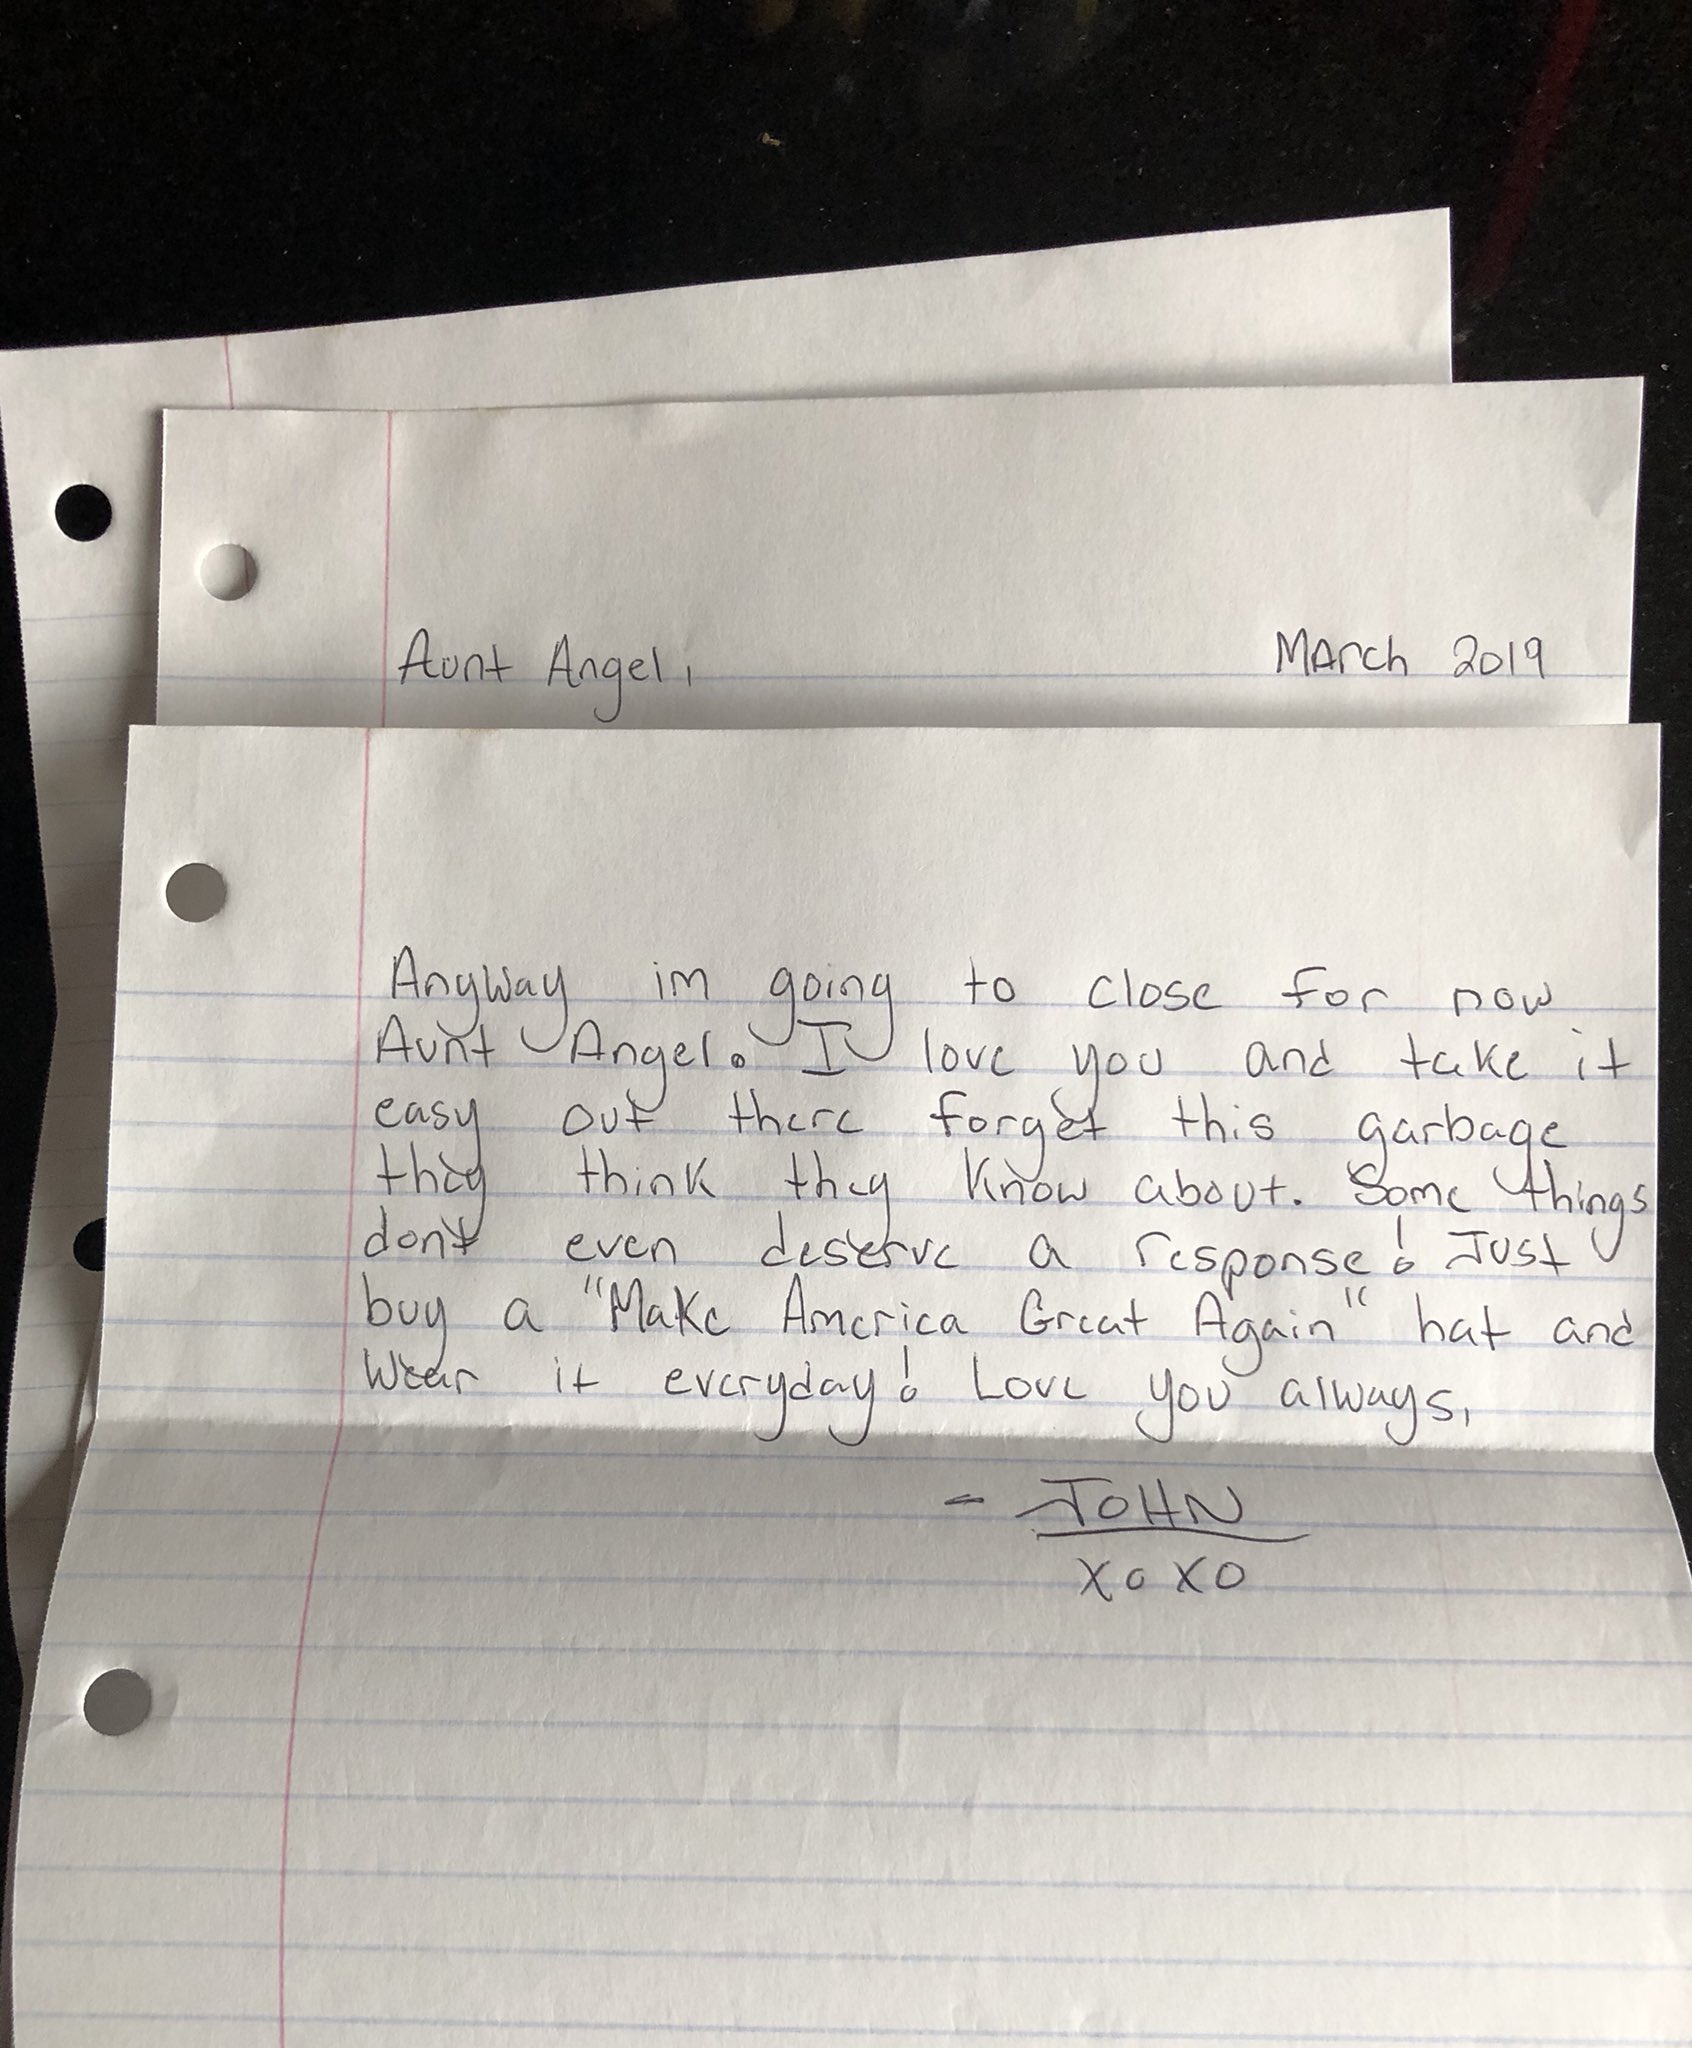 Aunt Angel, March 2019
Anyway im going to close for now
Aunt Angel. I love you and take it
easy out there forget this garbage
they think they know about. Some things
don't even deserve a response! Just
buy a "Make America Great Again" hat and
wear it everyday! Love you always,
- JOHN
xoxo